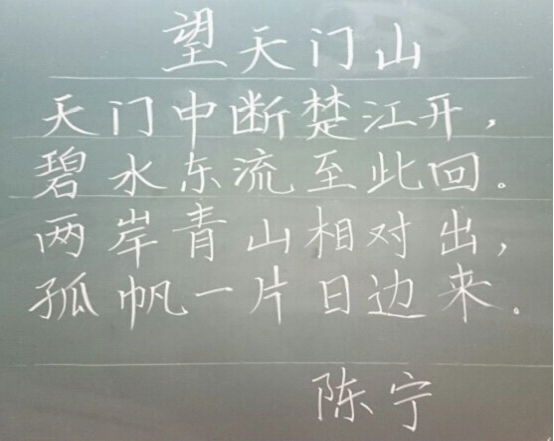 望天门山
天门中断楚江开，
碧水东流至此回。
两岸青山相对出，
孤帆一片日边来。
陈宁